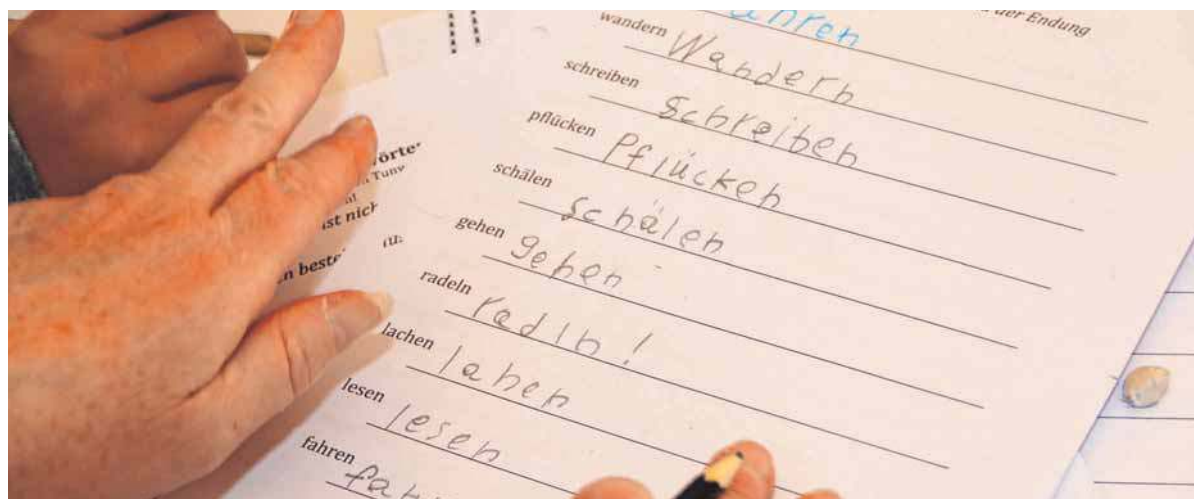 der Endung
wandern Wandern
schreiben schreiben
pflücken Pflücken
schälen schälen
gehen gehen
radeln radln!
lachen lahen
lesen lesen
fahren
ist nich
n beste